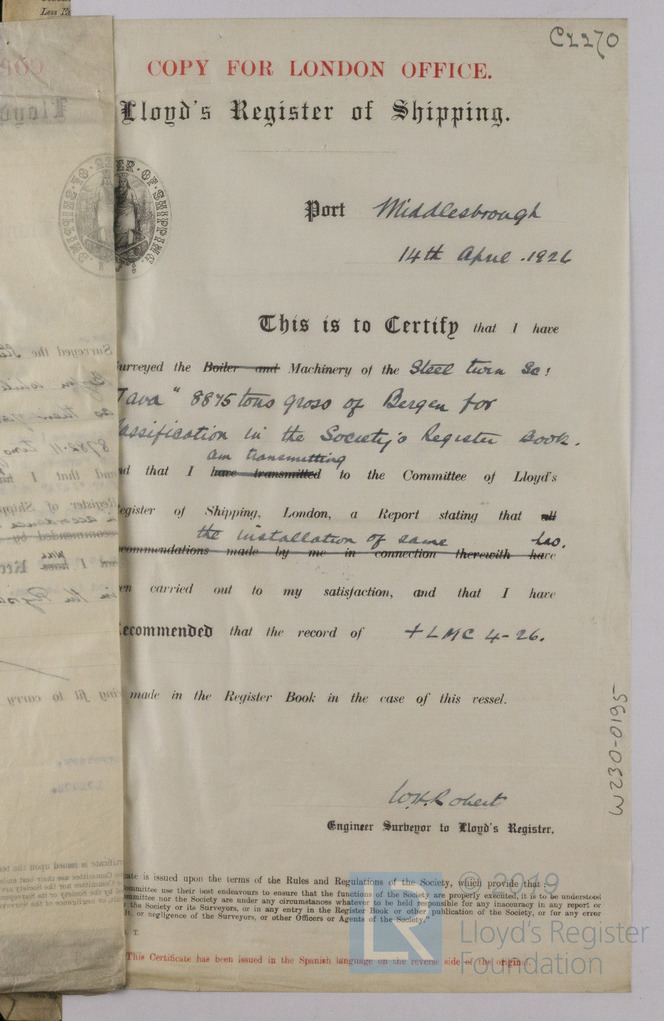 Less
C2270
COPY FOR LONDON OFFICE.
Lloyd's Register of Shipping.
Port Middlesbrough
14th April .1926
This is to Certify that I have
urveyed the Boiler and Machinery of the Steel twin Sc:
"Tava" 8875 tons gross of Bergen for
lassification in the Society's Register Book.
am transmitting
nd that I have transmitted to the Committee of Lloyd's
egister of Shipping, London, a Report stating that all
the installation of same has.
ecommendations made by me in connection therewith have
en carried out to my satisfaction, and that I have
ecommended that the record of + LMC 4-26.
made in the Register Book in the case of this vessel.
W230-0195
W.H. Robert
Engineer Surveyor to Lloyd's Register.
ate is issued upon the terms of the Rules and Regulations of the Society, which provide that :—
ommittee use their best endeavours to ensure that the functions of the Society are properly executed, it is to be understood
ommittee nor the Society are under any circumstances whatever to be held responsible for any inaccuracy in any report or
the Society or its Surveyors, or in any entry in the Register Book or other publication of the Society, or for any error
lt, or negligence of the Surveyors, or other Officers or Agents of the Society."
. T.
This Certificate has been issued in the Spanish language on the reverse side of the original.
© 2019
Lloyd's Register
Foundation